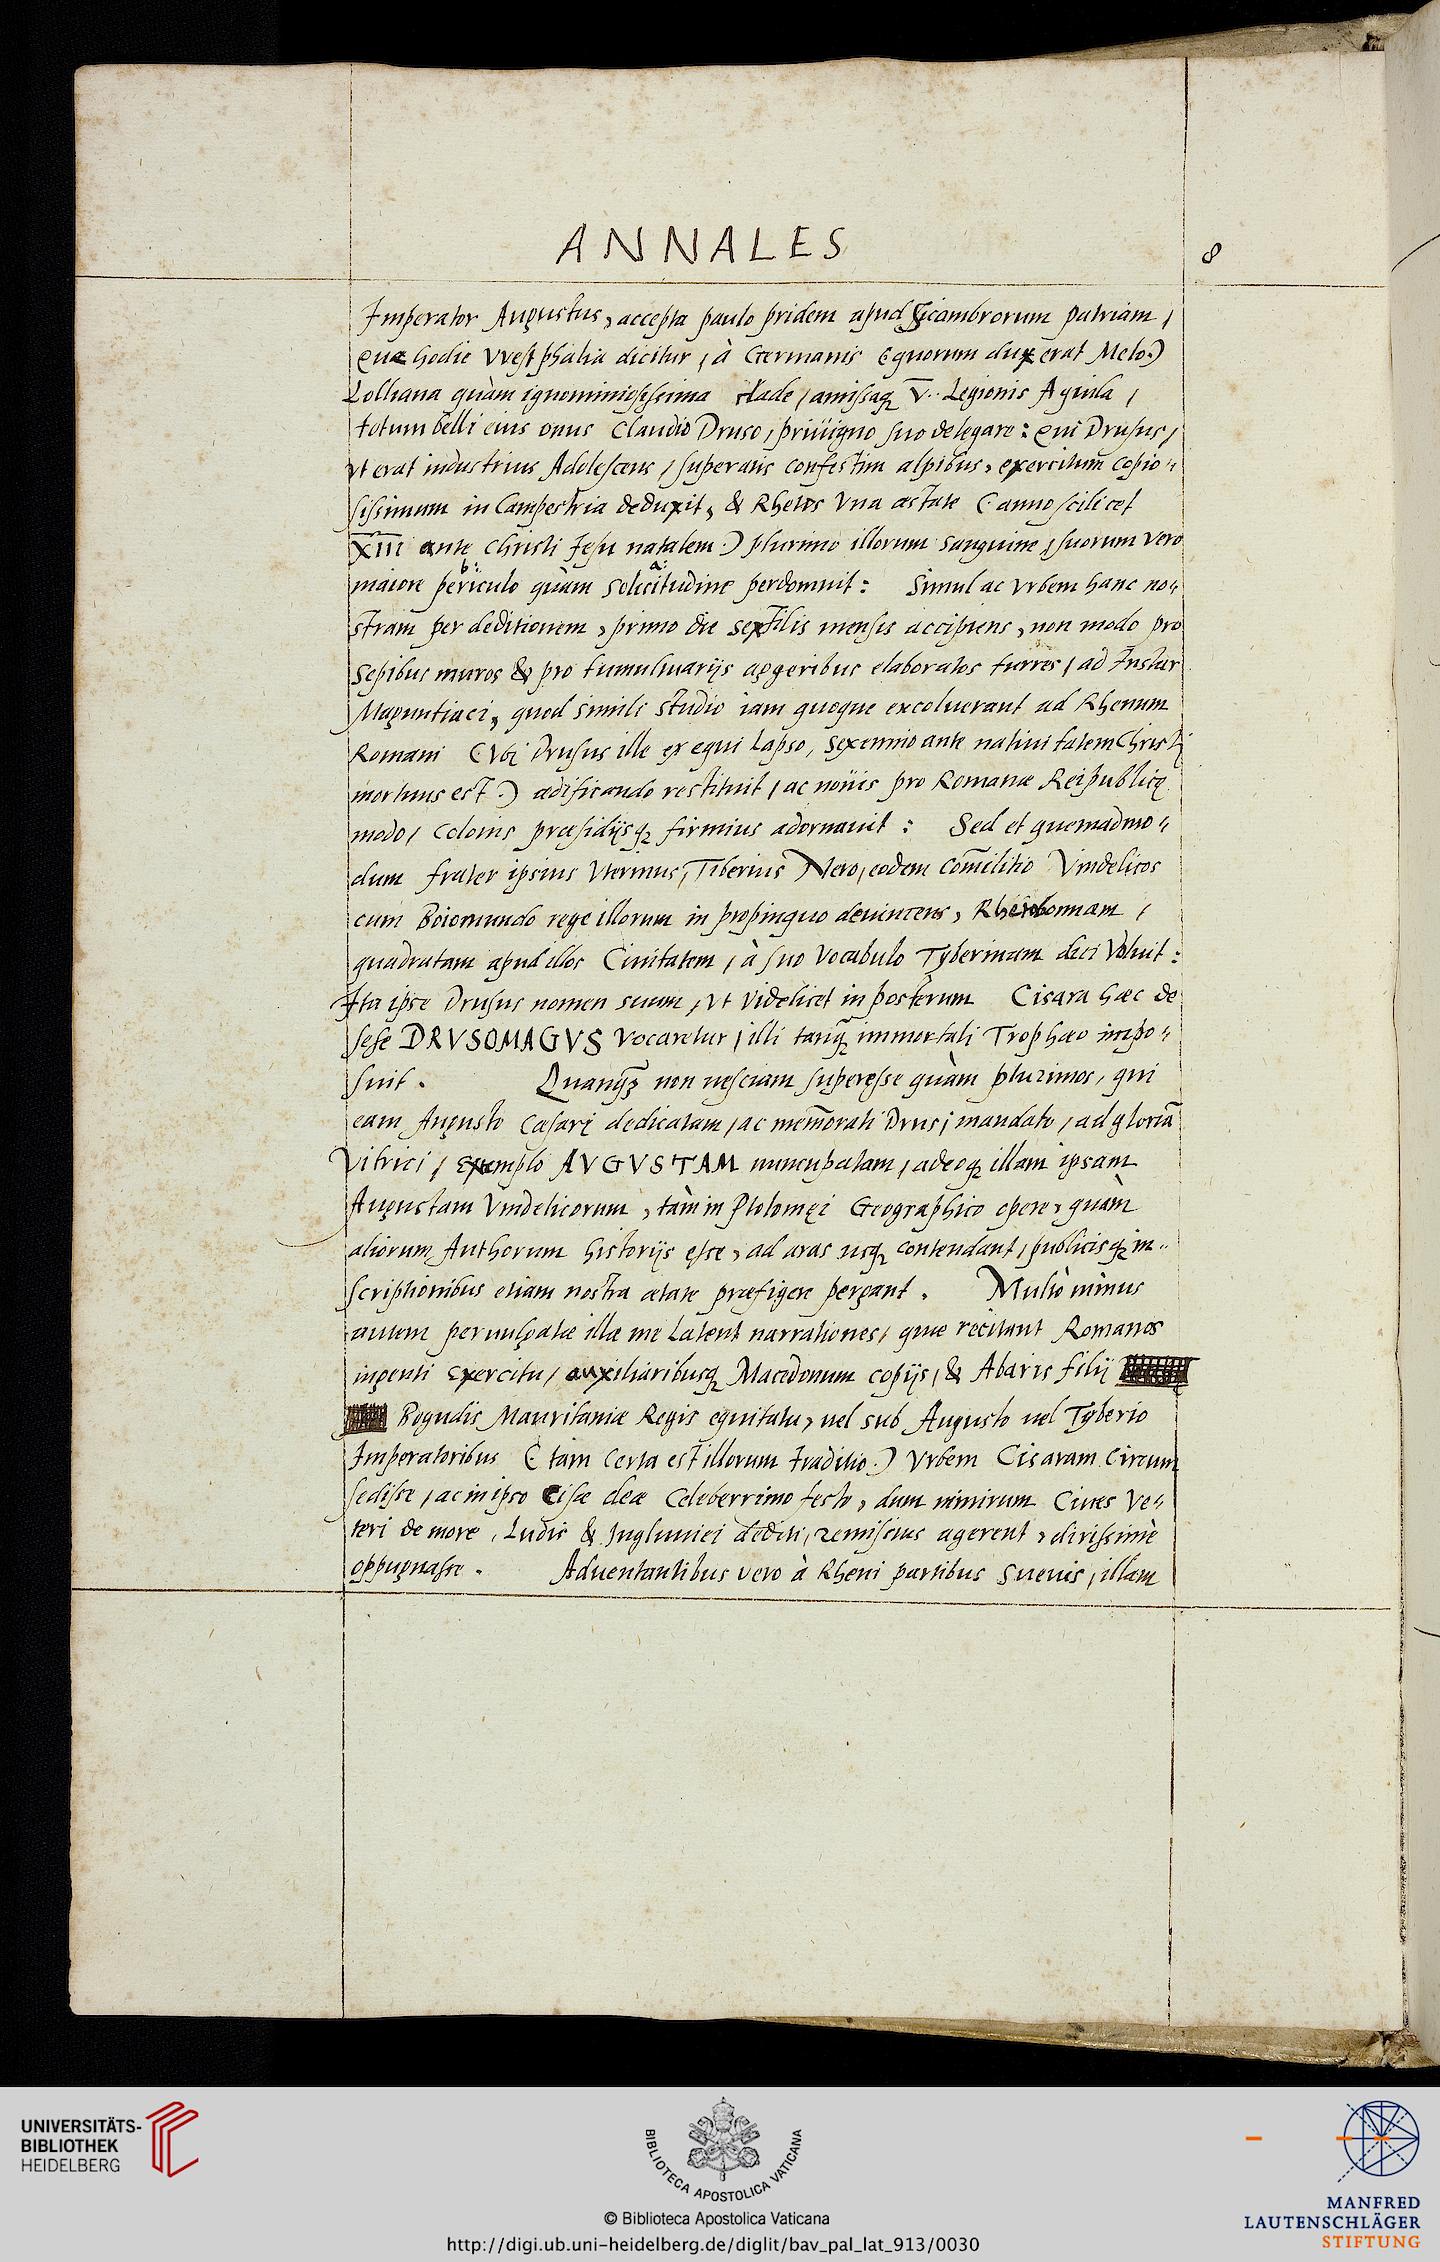 ANNALES
8
Imperator Augustus, accepta paulo pridem apud Sicambrorum patriam,
Quæ hodie VVestphalia dicitur, à Germanis (quorum dux erat Melo.)
Lolliana quàm ignominiosissima clade, amissaq; V. Legionis Aquila,
totum belli eius onus Claudio Druso, priuigno suo delegare: Qui Drusus,
vt erat industrius Adolescens, superatis confestim alpibus, exercitum copio"
sissimum in Campestria deduxit, & Rhetos Vna æstate (anno scilicet
XIII ante Christi Jesu natalem.) plurimo illorum sanguine, suorum vero
b. a.
maiore periculo quàm solicitudine perdomuit: Simul ac vrbem hanc no"
stram per deditionem, primo die sextilis mensis accipiens, non modo pro
Sepibus muros & pro tumultuarijs aggeribus elaboratos turres, ad Instar
Maguntiaci, quod simili studio iam quoque excoluerant ad Rhenum
Romani (Vbi Drusus ille ex equi lapso, sexennio ante natiuitatem Christi
mortuus est.) ædificando restituit, ac nouis pro Romanæ Reipublicę
modo, Colonis præsidijsq; firmius adornauit: Sed et quemadmo"
dum frater ipsius Vterinus, Tiberius Nero, eodem com̄ilitio Vindelicos
cum Boiomundo rege illorum in propinquo deuincens, Rhetobonnam,
quadratam apud illos Ciuitatem, à suo Vocabulo Tyberinam dici Voluit:
Ita ipse Drusus nomen suum, vt videlicet in posterum Cisara hæc de
sese DRVSOMAGVS vocaretur, illi tanq̄ immortali Trophæo impo"
suit. Quanq̄ non nesciam superesse quàm plurimos, qui
eam Augusto Cæsari dedicatam, ac mem̄orati Drusi mandato, ad gloriā
Vitrici, exemplo AVGVSTAM nuncupatam, adeoq; illam ipsam
Augustam Vindelicorum, tàm in Ptolomęi Geographico opere, quàm
aliorum Authorum historijs esse, ad aras usq; contendant, publicisq; in"
scriptionibus etiam nostra ætate præfigere pergant. Multò minus
autem peruulgatæ illæ me latent narrationes, quæ recitant Romanos
ingenti exercitu, auxiliaribusq; Macedonum copijs, & Abaris filij
Bogudis Mauritaniæ Regis equitatu, uel sub Augusto uel Tyberio
Imperatoribus (tam certa est illorum traditio.) Vrbem Cisaram Circum
sedisse, ac in ipso Cisæ deæ Celeberrimo festo, dum nimirum Ciues Ve"
teri de more, Ludis & Ingluuiei dediti, remissius agerent, dirissimè
oppugnasse. Aduentantibus vero à Rheni partibus Sueuis, illam
UNIVERSITÄTS-
BIBLIOTHEK
HEIDELBERG
BIBLIOTECA APOSTOLICA VATICANA
© Biblioteca Apostolica Vaticana
http://digi.ub.uni-heidelberg.de/diglit/bav_pal_lat_913/0030
MANFRED
LAUTENSCHLÄGER
STIFTUNG